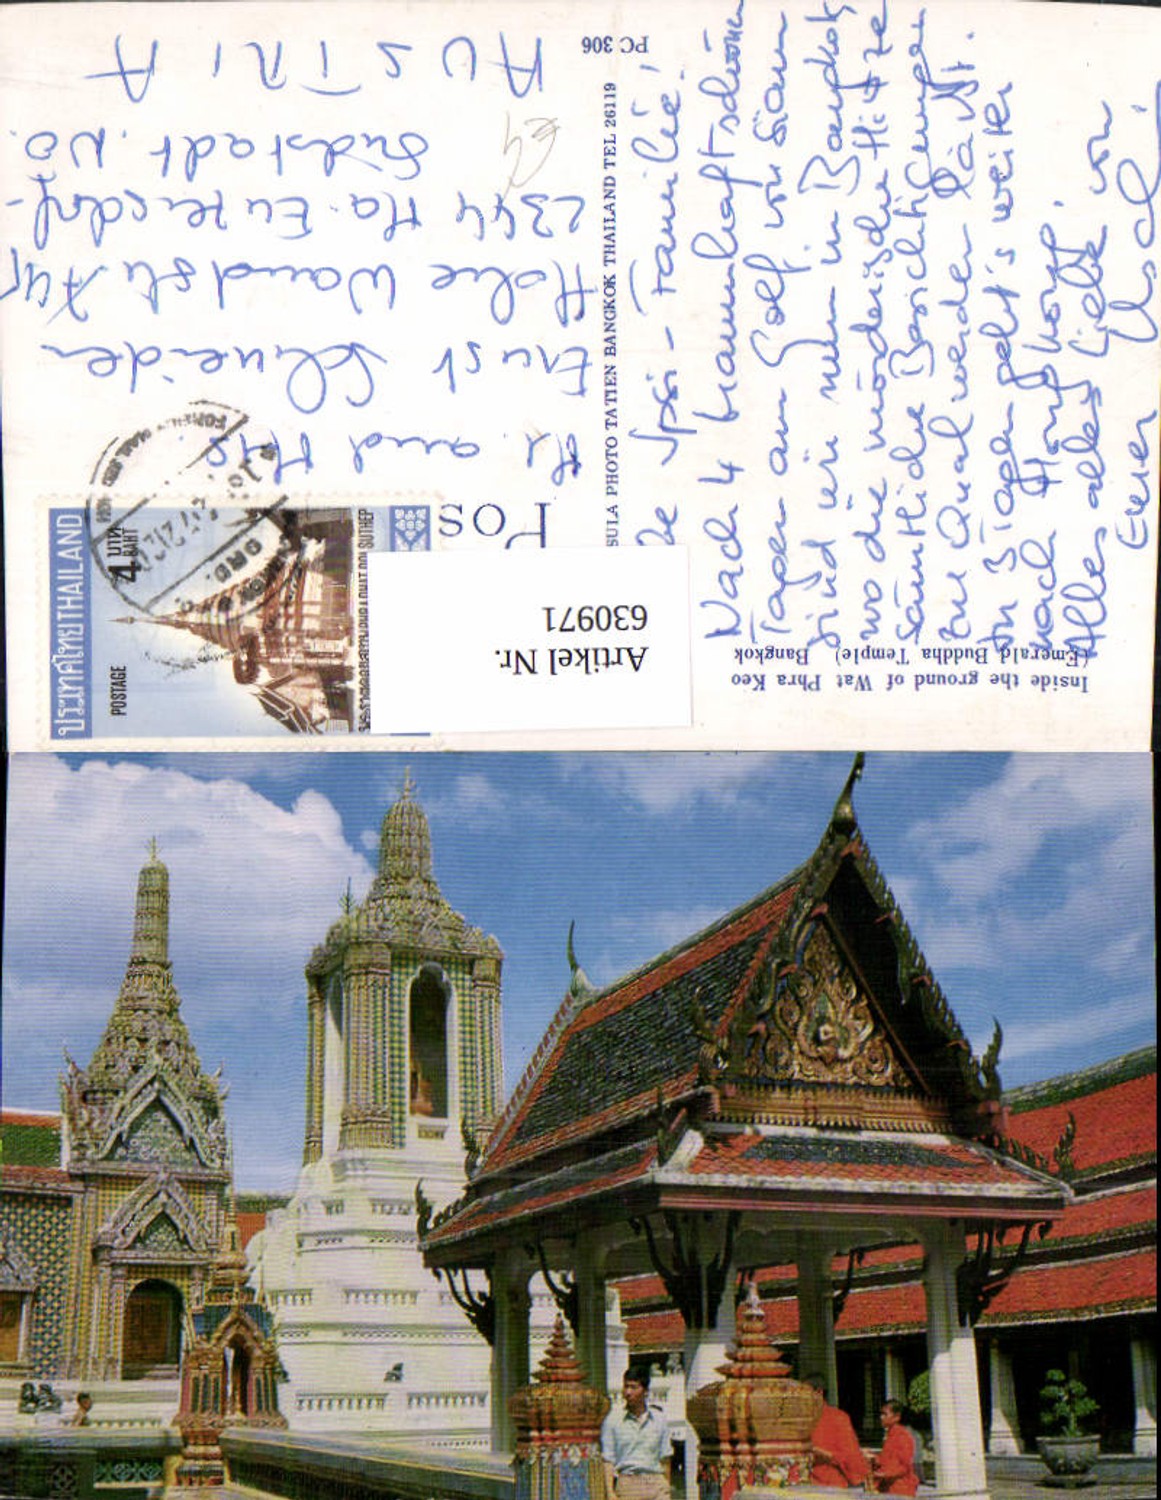 Inside the ground of Wat Phra Keo
(Emerald Buddha Temple) Bangkok
Nach 4 traumhaft schönen
Tagen am Golf von Siam
sind wir nun in Bangkok
wo die mörderische Hitze
sämtliche Besichtigungen
zur Qual werden läßt.
In 3 Tagen geht's weiter
nach Hongkong.
Alles alles Liebe von
Eurer Uschi
PC 306
SULA PHOTO TATIEN BANGKOK THAILAND TEL 26119
POS
Mr. and Mrs.
Ernst Schneider
Hohe Wandstr.
2344 Ma. Enzersdorf-
Südstadt. NÖ.
AUSTRIA
ประเทศไทย THAILAND
4 บาท
BAHT
POSTAGE
Artikel Nr.
630971